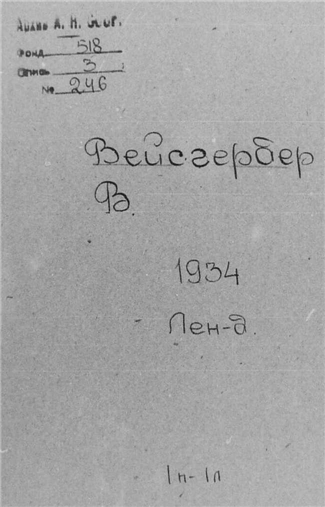 Архив А. Н. СССР.
фонд 518
опись 3
№ 246
Вейсгербер
В.
1934
Лен-д.
1п-1л